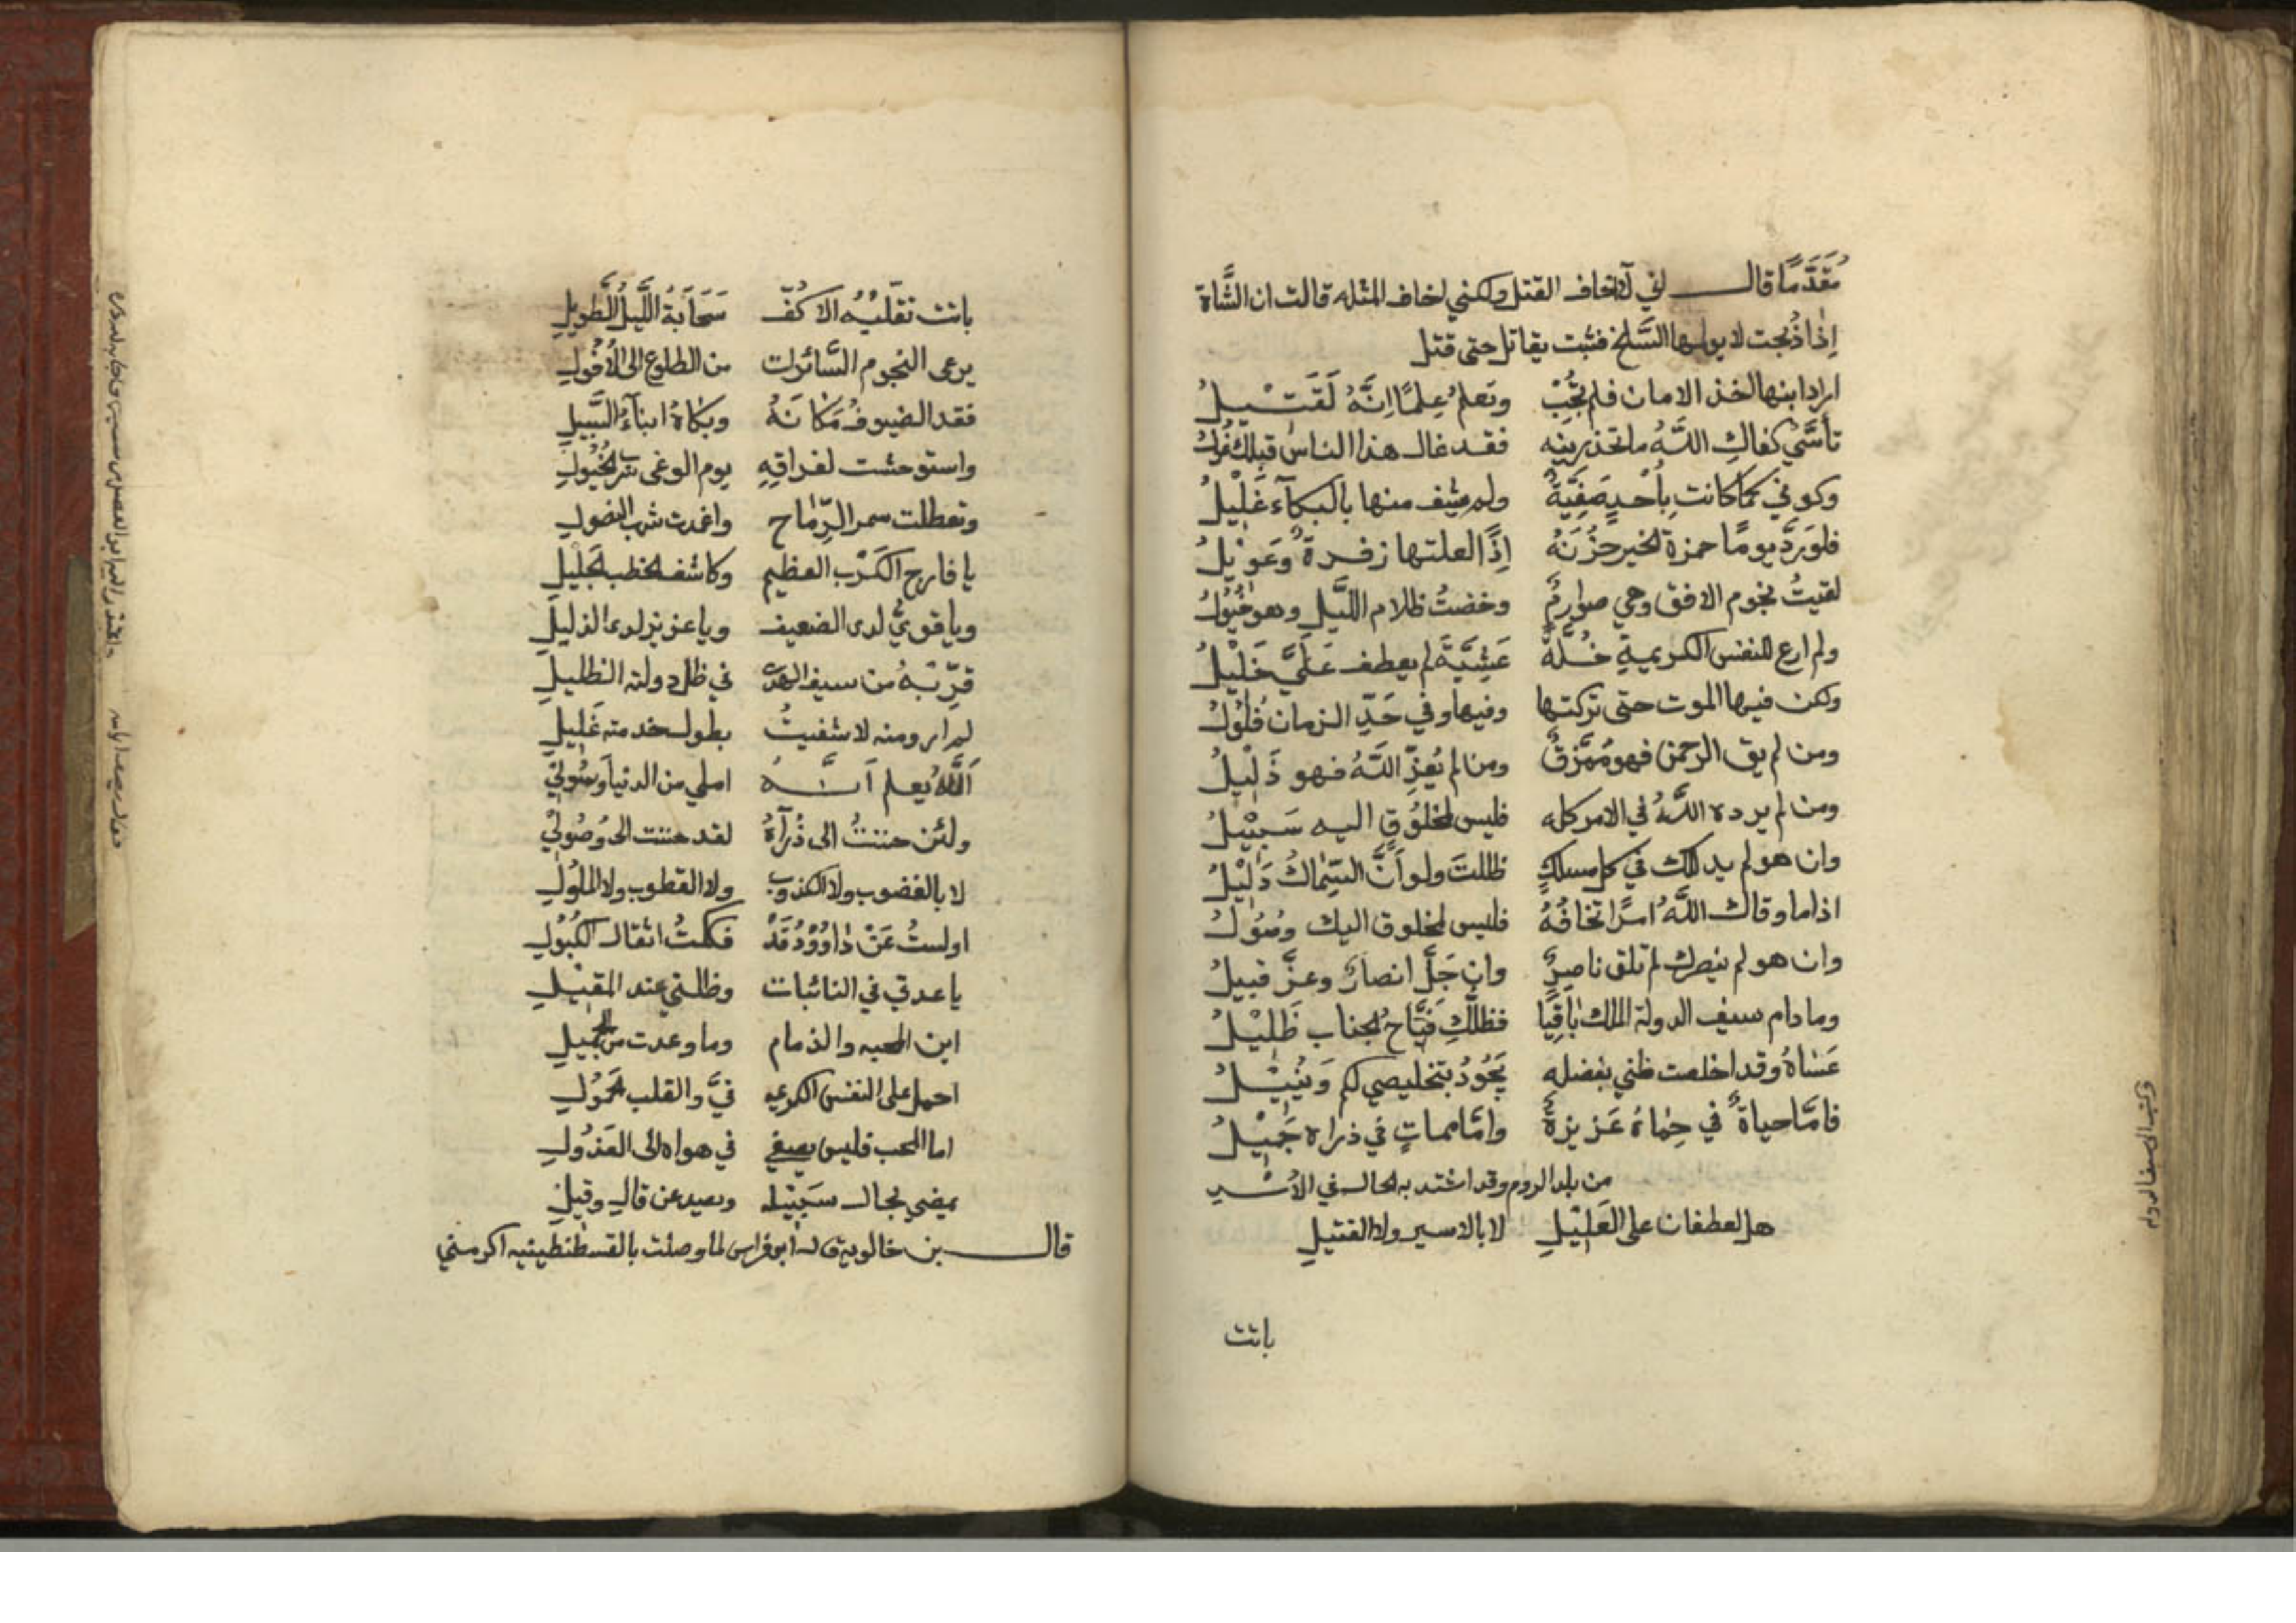 مُقَدَّمًا قال إني لا أخاف القتل ولكنني اخاف المثله قالت ان الشَّاة
إذا ذُبحت لا يولمها السَّلخ فثبت يقاتل حتى قتل
اراد ابنها اخذ الامان فلم تجُبْ وتعلمُ عِلمًا اِنَّهُ لَقَتيلُ
تأسَّيْ كفاكِ اللهُ ما تحذرينه فقد غال هذا الناس قبلكِ غُولُ
وكوني كما كانت بِأُحدٍ صَفِيَّةٌ ولم يشف منها بالبكآء غَليْلُ
فلو رَدَّ يومًا حمزة الخير حزنَهُ إذًا لعلتها زفرة وعَوِيلُ
لقيتُ نجوم الافق وهي صوارمٌ وخضتُ ظلام اللَّيل وهو خيُولُ
ولم ارع للنفس الكريمةِ خُلَّةً عَشِيَّةَ لم يعطف عَلَيَّ خَليْلُ
ولكن فيها الموت حتى تركتها وفيها وفي حَدِّ الزمان فُلُوْلُ
ومن لم يق الرحمن فهو مُمزَّقٌ ومن لم يُعِزّ اللهُ فهو ذَلِيْلُ
ومن لم يرده اللهُ في الامر كله فليس لمخلُوقٍ اليه سَبِيْلُ
وان هو لم يدللك في كل مسلكٍ ظللتَ ولو اَنَّ السِّماكَ دَلِيْلُ
اذا ما وقاك اللهُ امرًا تخافُهُ فليس لمخلوق اليك وصُوُلُ
وان هو لم ينصرك لم تلق ناصرٌ وان جَلَّ انصارٌ وعزَّ قبيلُ
وما دام سيف الدولة الملك بَاقِيًا فظلَّكِ فيَّاح الجناب ظَلِيْلُ
عَسَاهُ وقد اخلصت ظني بفضله يَجُوُدُ بتخليصي لكم وَيُنِيْلُ
فامَّا حياةٌ في حِمَاهُ عَزيزةٌ وامَّا مماتٍ في ذراه جَمِيْلُ
من بلد الروم وقد اشتد به الحال في الأسْر
هل لعطفان على العَليْلِ لا بالاسير ولا القتيلِ
باتت
وكتب الى سيف الدوله
باتت تقلّبُه الاكُفّ سَحَابَةُ اللَّيلِ الطَّويلِ
يرعى النجوم السَّائرات من الطلوع الى الأُفُولِ
فقد الضيوفُ مَكَانَهُ وبكاهُ ابناءُ السَّبيلِ
واستوحشت لفراقِهِ يوم الوغى سِربُ الخيُولِ
وتعطلت سمر الرِّماح واغمدت شهب النصولِ
يا فارج الكَرْب العظيم وكاشف الخطب الجَليلِ
ويا قويُّ لدى الضعيف ويا عزيز لدى الذليلِ
قرِّبْهُ من سيف الهُدَى في ظل دولته الظليلِ
لم ارو منه لا شفيتُ بطول خدمته غَليلِ
اَللهُ يعلم اَنَّهُ املي من الدنيا وسُولي
ولئن حننتُ الى ذُرآهُ لقد حننت الى وُصُولي
لا بالغضوب ولا الكذوب ولا القطوب ولا الملُولِ
اولستُ عَنْ داوُوْدُ قَدْ فككتُ اثقال الكُبُولِ
يا عدتي في النائبات وظلتي عند المقيلِ
اين المحبه والذمام وما وعدت من الجميلِ
احمل على النفس الكريمه فيَّ والقلب الحَمُوُلِ
اما المحب فليس يصغي في هواه الى العَذُولِ
يمضي بحال سَبِيْله وبعيد عن قالٍ وقيلِ
قال بن خالويه قال ابو فراس لما وصلت بالقسطنطينيه اكرمني